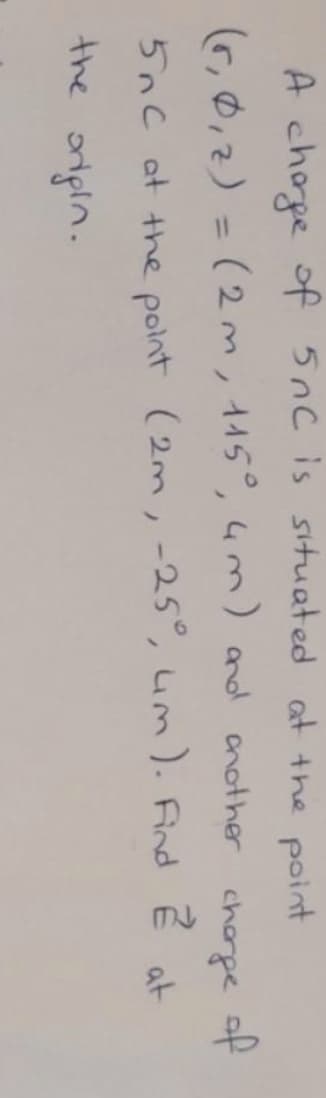 A charge of 5nC is situated at the point
(r, Ø, z) = (2m, 115°, 4m) and another charge of
5nC at the point (2m, -25°, 4m). Find E⃗ at
the origin.